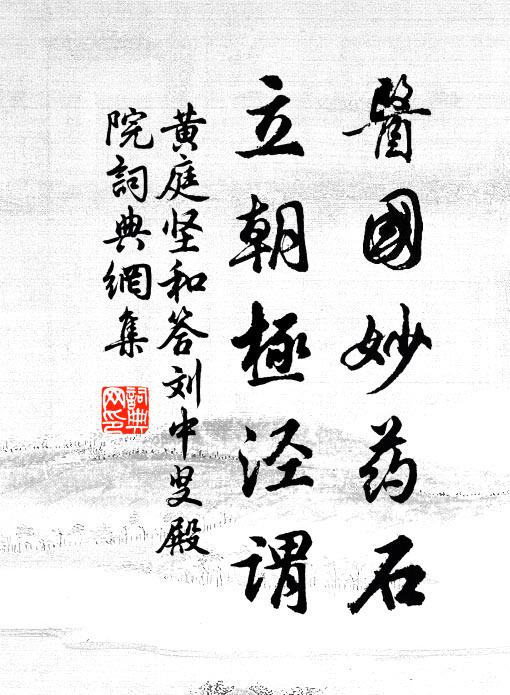 醫國妙药石
立朝極泾谓
黄庭坚和答刘中叟殿
院詞典網集
詞典
网印